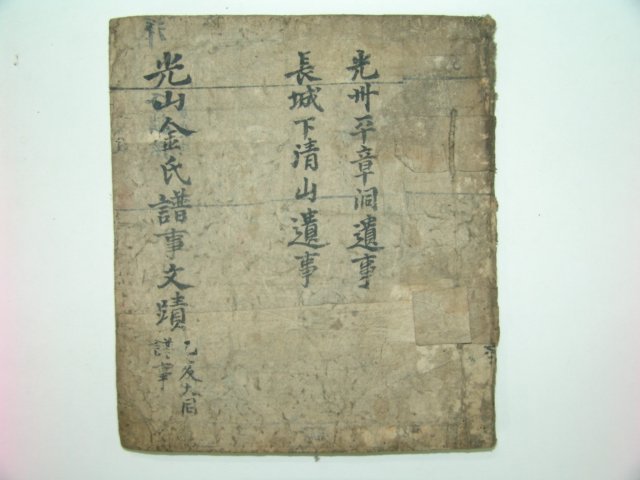 光州平章洞遺事
長城下清山遺事
光山金氏譜事文蹟
乙亥大同
譜事